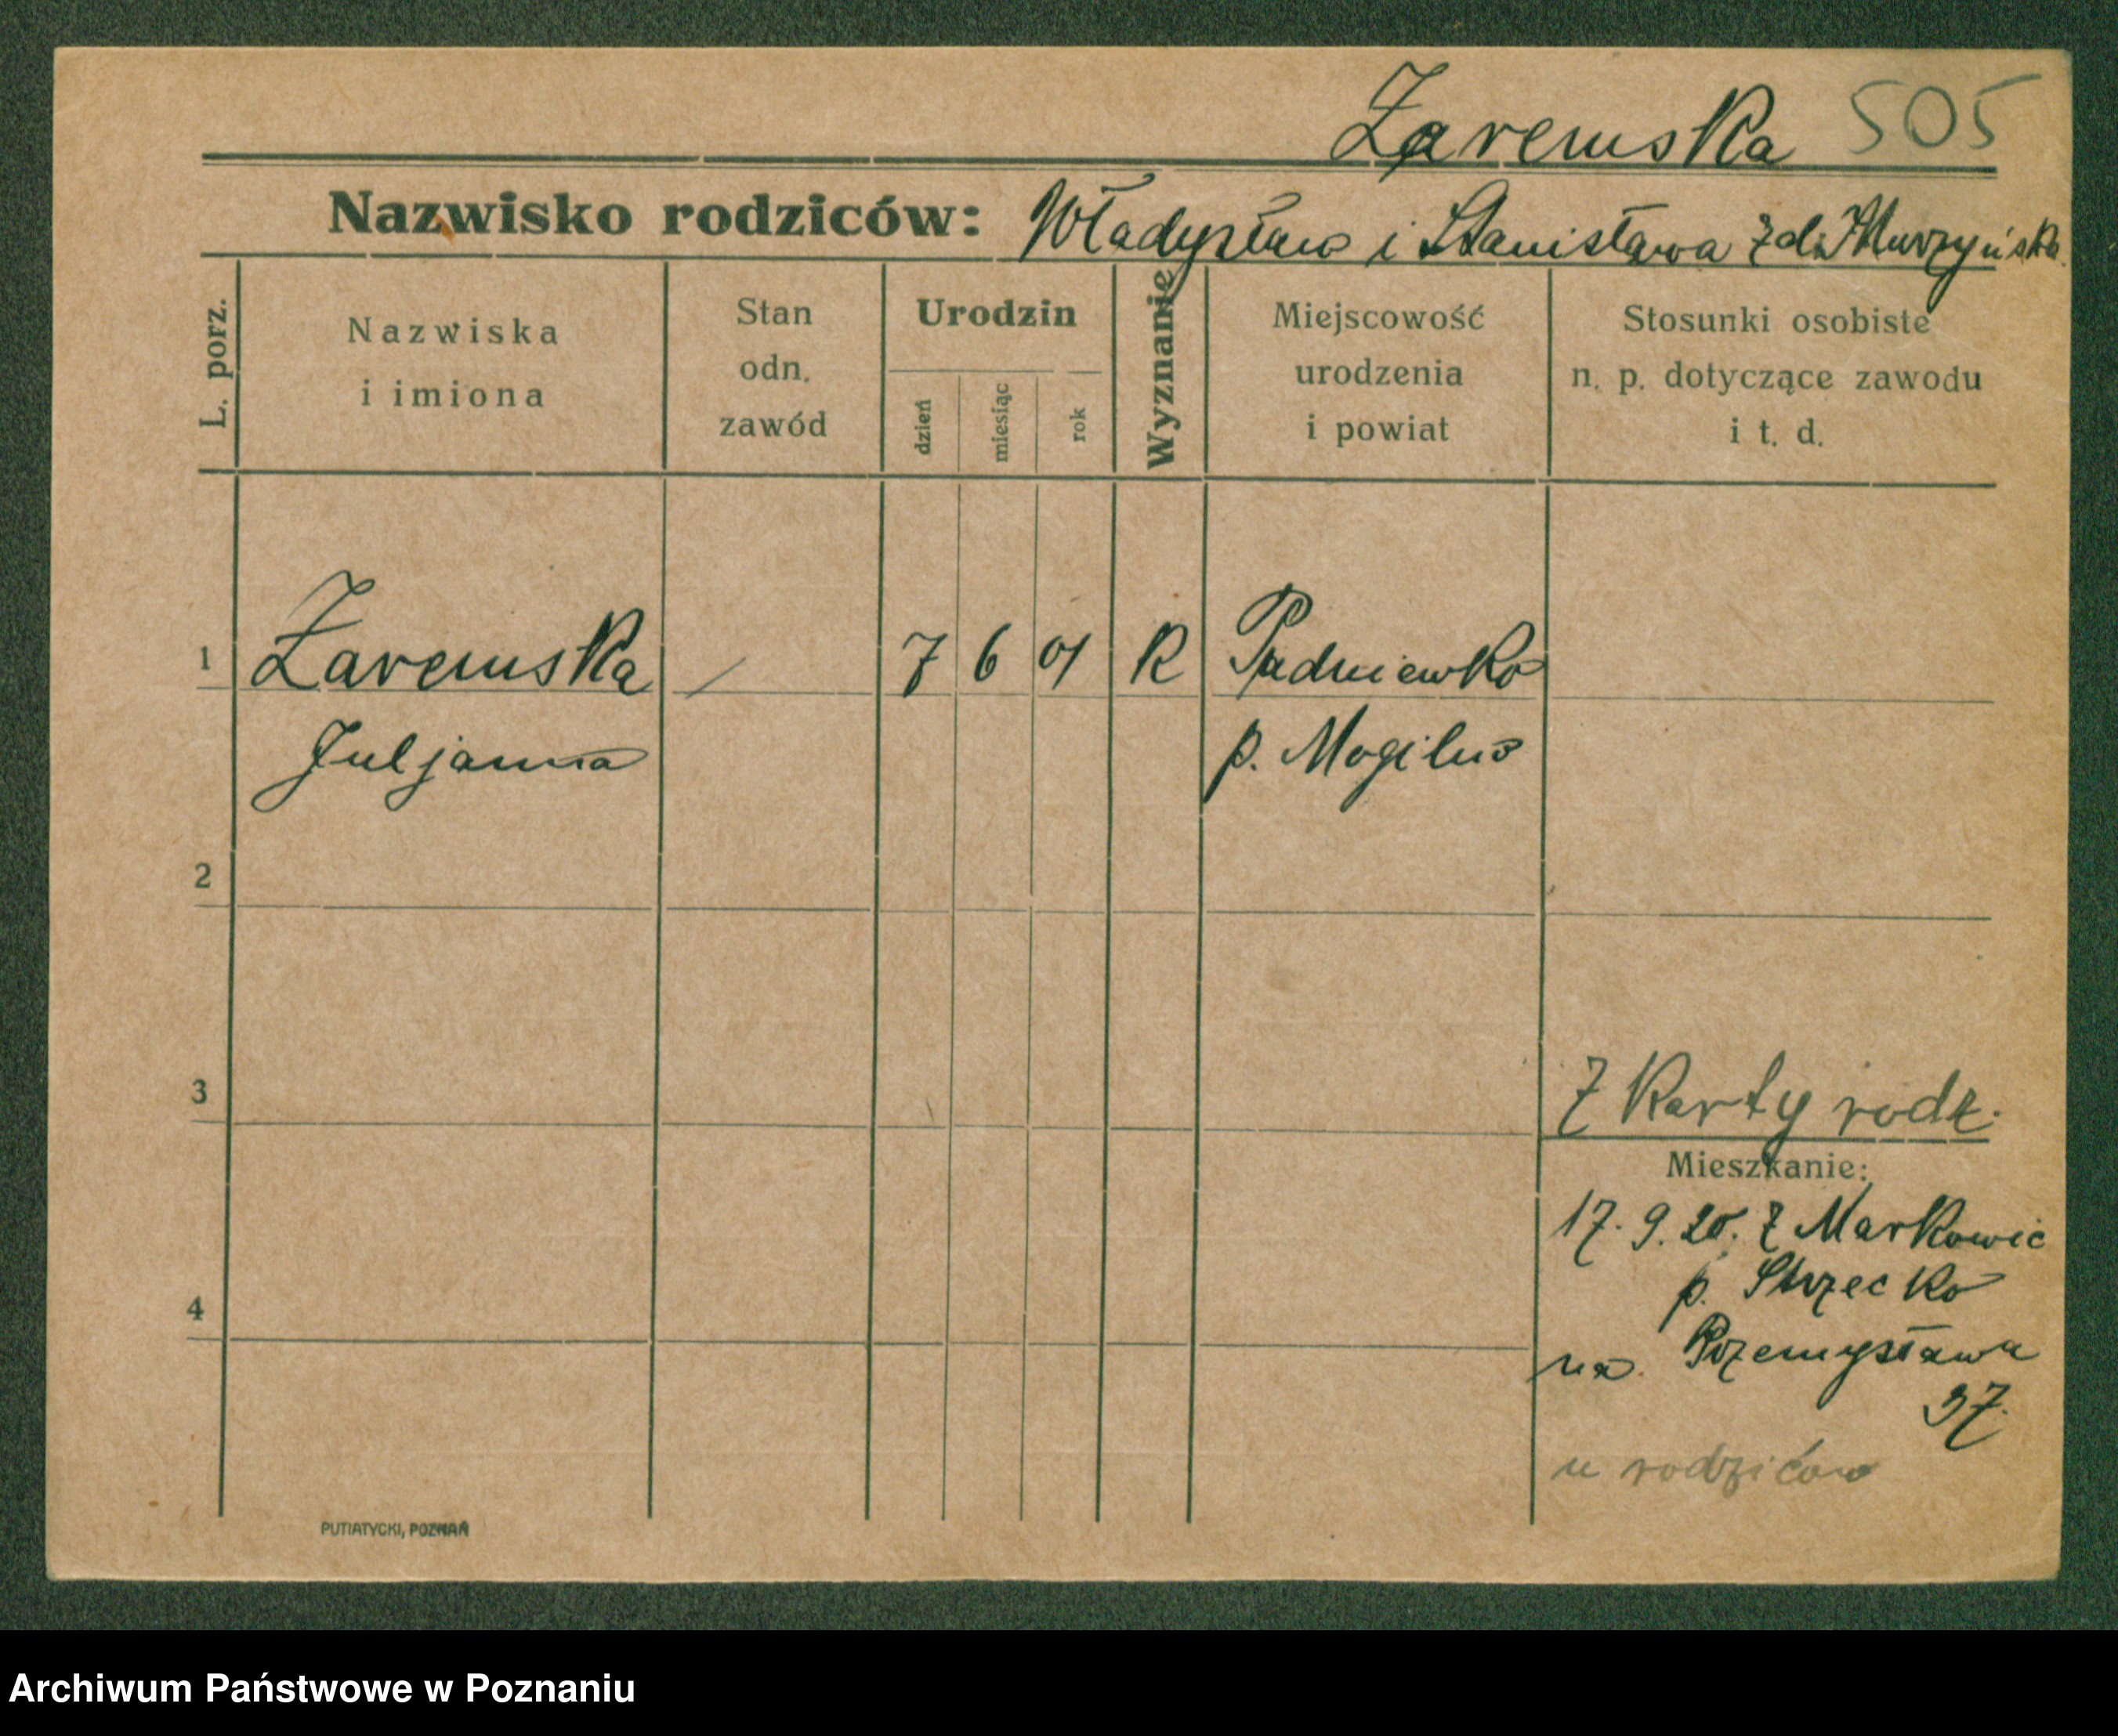 Zaremska 505
Nazwisko rodziców: Władysław i Stanisława z d. Murzyńska
L. porz.
Nazwiska
i imiona
Stan
odn.
zawód
Urodzin
dzień
miesiąc
rok
Wyznanie
Miejscowość
urodzenia
i powiat
Stosunki osobiste
n. p. dotyczące zawodu
i t. d.
1 Zaremska / 7 6 01 K Padniewko
Juljanna p. Mogilno
2
3 Z Karty rodz.
Mieszkanie:
17. 9. 20. z Markowic
4 p. Strzelcko
na. Przemysława
37.
u rodziców
PUTIATYCKI, POZNAŃ
Archiwum Państwowe w Poznaniu